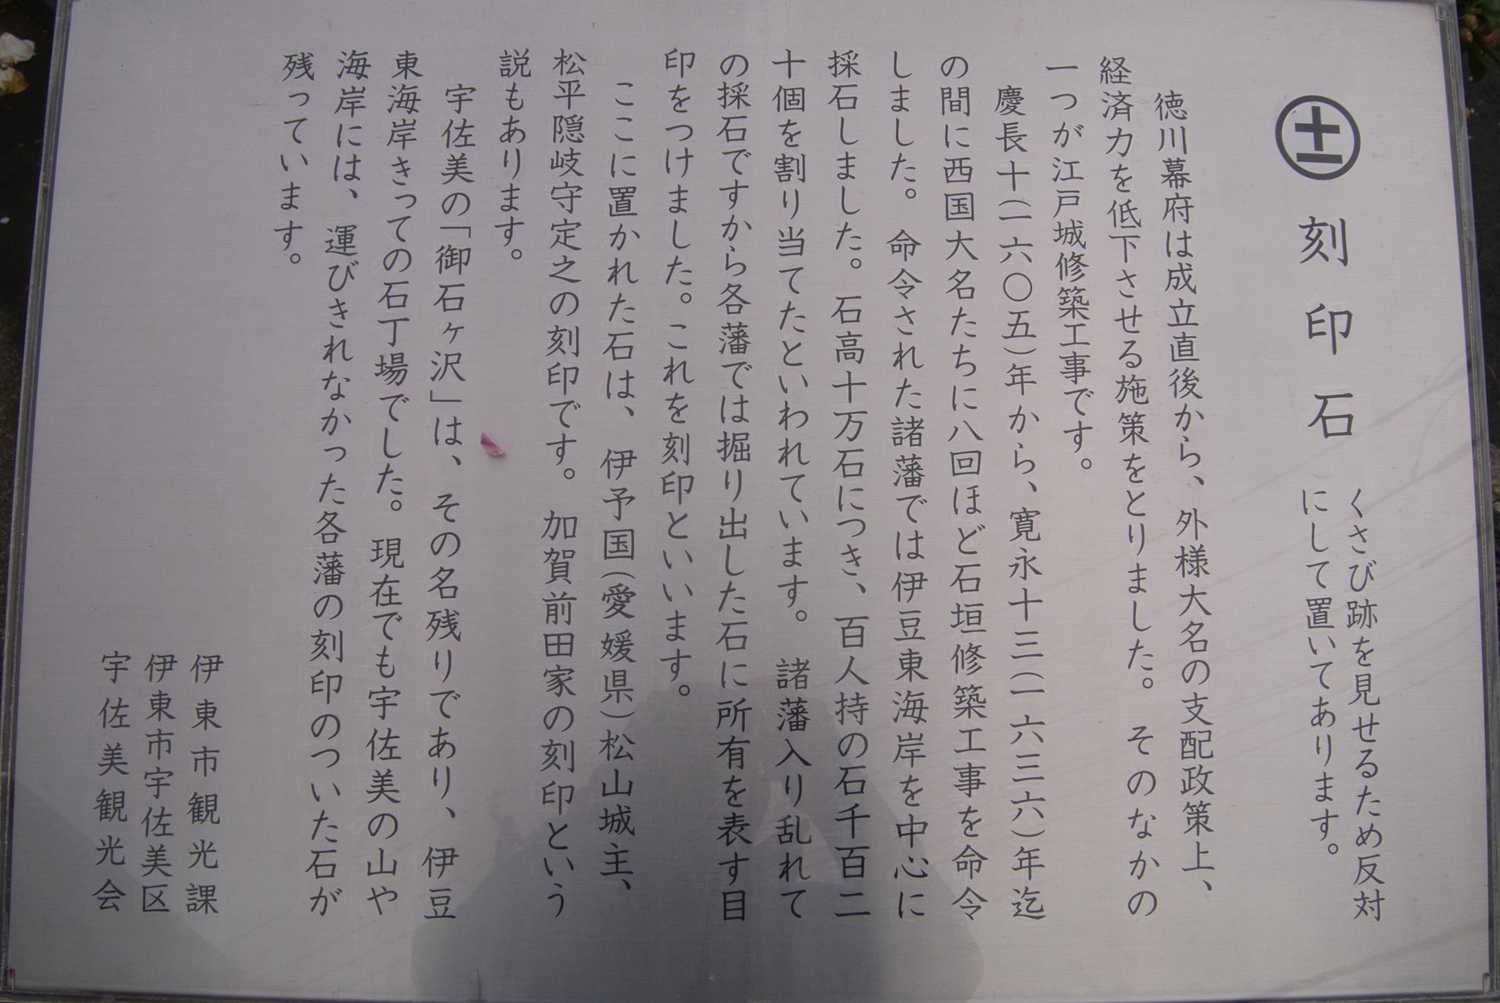 刻印石
くさび跡を見せるため反対
にして置いてあります。
徳川幕府は成立直後から、外様大名の支配政策上、
経済力を低下させる施策をとりました。そのなかの
一つが江戸城修築工事です。
慶長十(一六〇五)年から、寛永十三(一六三六)年迄
の間に西国大名たちに八回ほど石垣修築工事を命令
しました。命令された諸藩では伊豆東海岸を中心に
採石しました。石高十万石につき、百人持の石千百二
十個を割り当てたといわれています。諸藩入り乱れて
の採石ですから各藩では掘り出した石に所有を表す目
印をつけました。これを刻印といいます。
ここに置かれた石は、伊予国(愛媛県)松山城主、
松平隠岐守定之の刻印です。加賀前田家の刻印という
説もあります。
宇佐美の「御石ヶ沢」は、その名残りであり、伊豆
東海岸きっての石丁場でした。現在でも宇佐美の山や
海岸には、運びきれなかった各藩の刻印のついた石が
残っています。
伊東市観光課
伊東市宇佐美区
宇佐美観光会